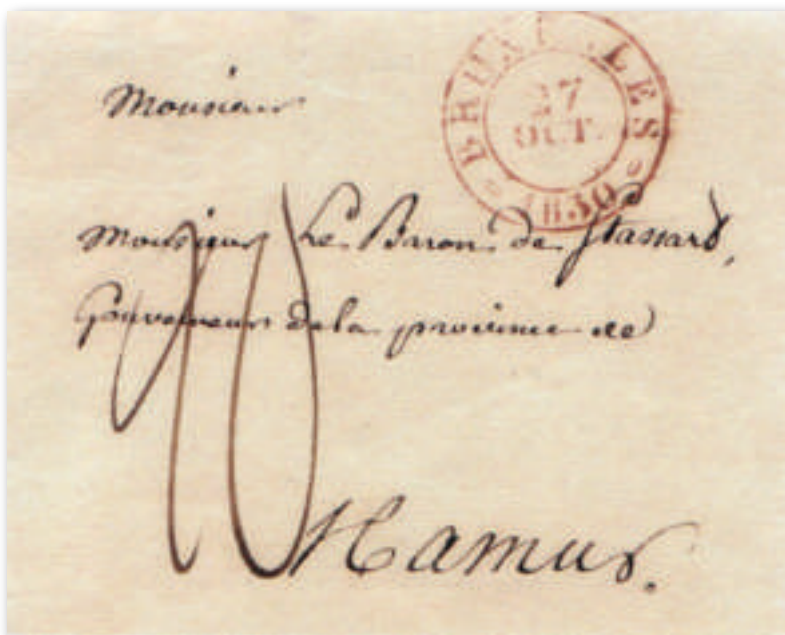 Monsieur
BRUXELLES
27
OCT.
1830
Monsieur Le Baron de Stassart,
Gouverneur de la province de
Namur.